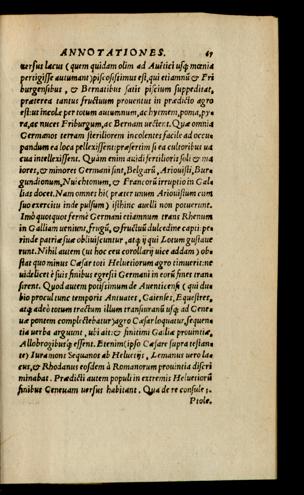 ANNOTATIONES. 67
uersus lacus (quem quidam olim ad Autici usq; mœnia
pertigisse autumant) piscosissimus est, qui etiamnũ & Fri
burgensibus, & Bernatibus satis pisciũ suppeditat,
præterea tantus fructuum prouentus in prædicto agro
est: ut incolæ per totum autumnum, ac hyemem, poma, py-
ra, ac nuces Friburgum, ac Bernam uectent. Quæ omnia
Germanos terram steriliorem incolentes facile ad occu-
pandum ea loca pellexissent: præsertim si ea cultoribus ua
cua intellexissent. Quàm enim auidi fertilioris soli & ma
iores, & minores Germani sint, Belgarũ, Ariouisti, Bur-
gundionum, Nuichtonum, & Francorũ irruptio in Gal-
lias docet. Nam omnes hi (præter unum Ariouistum cum
suo exercitu inde pulsum) isthinc auelli non potuerunt.
Imò quotquot fermè Germani etiamnum trans Rhenum
in Galliam ueniunt, frugũ, & fructuũ dulcedine capti: pe-
rinde patriæ suæ obliuiscuntur, atq; ij qui Lotum gustaue
runt. Nihil autem (ut hoc ceu corollarij uice addam) ob-
stat quo minus Cæsar toti Heluetiorum agro timuerit: ne
uidelicet è suis finibus egressi Germani in eorũ fines trans
sirent. Quod autem potissimum de Auenticensi (qui du-
bio procul tunc temporis Antuates, Caienses, Equestres,
atq; adeò totum tractum illum transiuranũ usq; ad Gene-
uæ pontem complectebatur) agro Cæsar loquatur, sequen-
tia uerba arguunt, ubi ait: & finitimi Galliæ prouintiæ,
Allobrogibusq; essent. Etenim (ipso Cæsare supra testan-
te) Iura mons Sequanos ab Heluetijs, Lemanus uero la-
cus, & Rhodanus eosdem à Romanorum prouintia discri
minabat. Prædicti autem populi in extremis Heluetiorũ
finibus Geneuam uersus habitant. Qua de re consule;
Ptole.